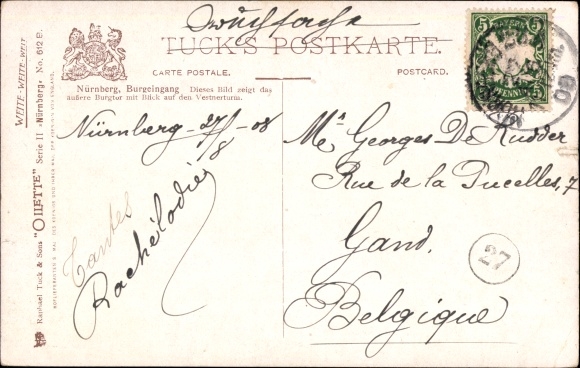 Drucksache
TUCK'S POSTKARTE.
CARTE POSTALE.
POSTCARD.
Nürnberg, Burgeingang Dieses Bild zeigt das
äußere Burgtor mit Blick auf den Vestnerturm.
Nürnberg - 27/8 - 08
Tantes
Rachélodie
BAYERN
5 5
PFENNIG
Mr Georges De Rudder
Rue de la Pucelles, 7
Gand.
Belgique
27
WEIT-WEITE-WELT
Raphael Tuck & Sons "OILETTE" Serie II «Nürnberg» No. 612 B.